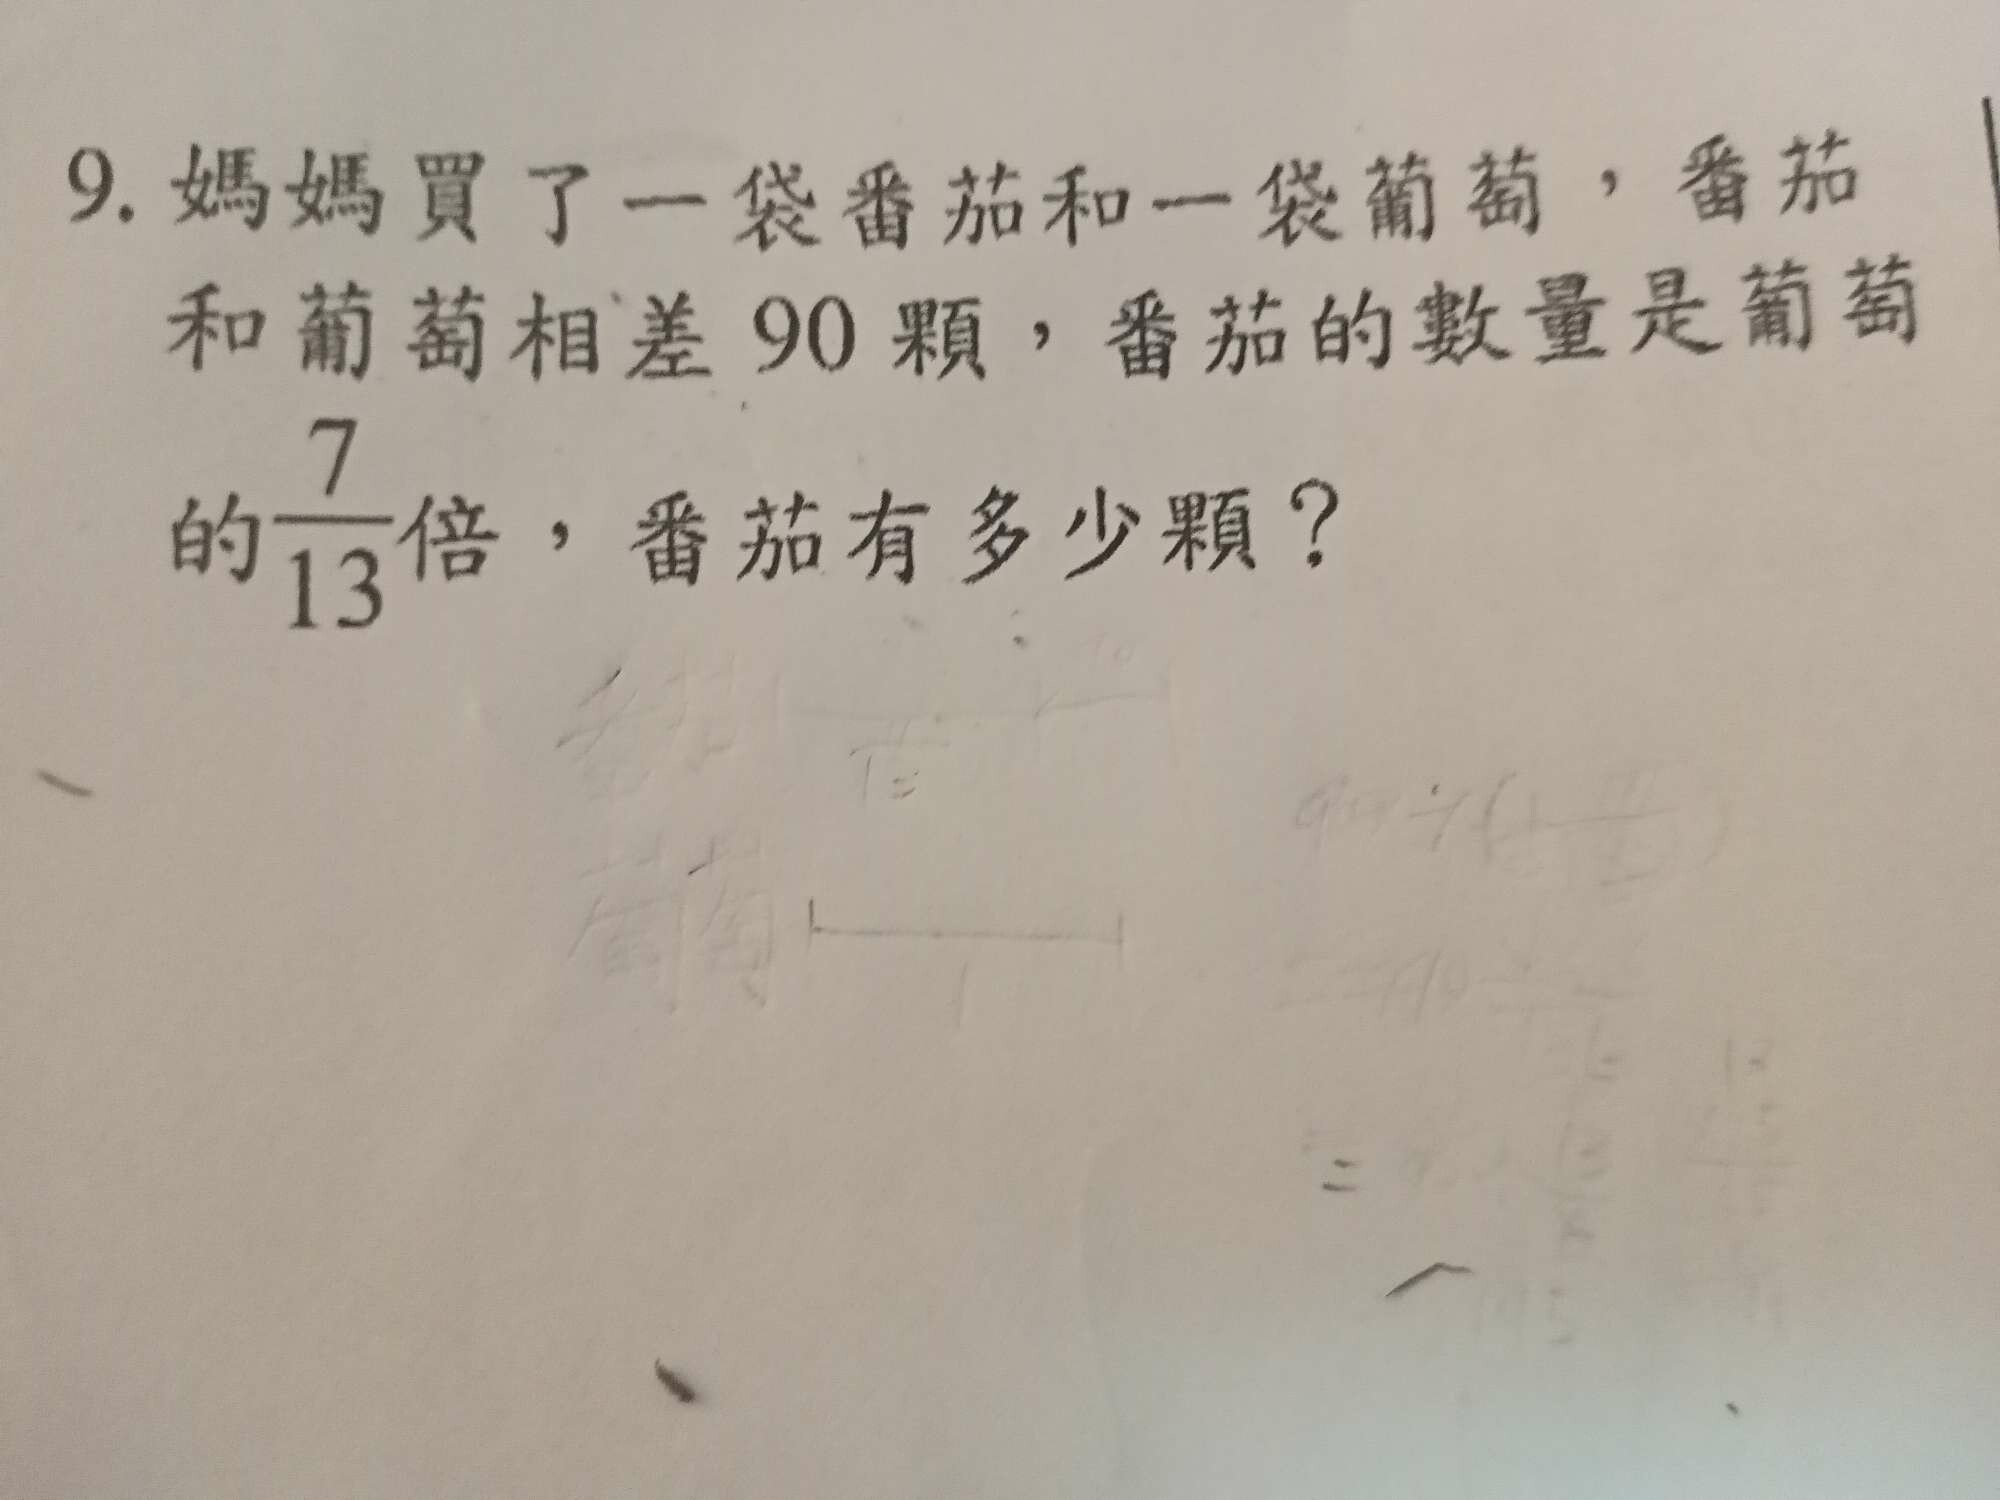 9. 媽媽買了一袋番茄和一袋葡萄，番茄
和葡萄相差 90 顆，番茄的數量是葡萄
的7/13倍，番茄有多少顆？
葡萄
1